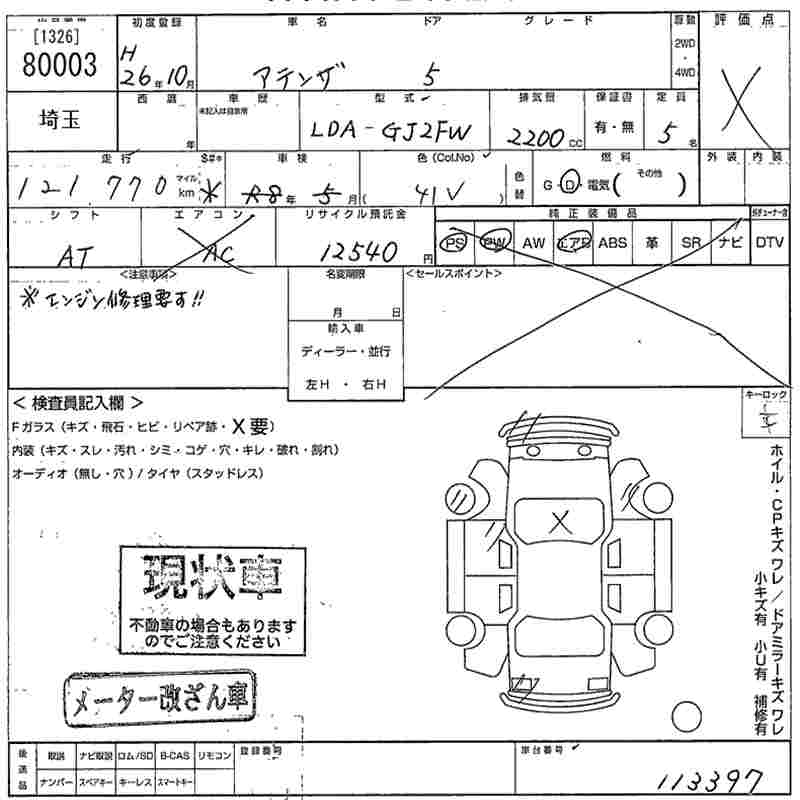 初度登録 車名 ドア グレード 評価点
[1326]
80003
H 26年10月 アテンザ 5 2WD・4WD X
埼玉
西暦 年 車歴 未記入は自家用 型式 LDA-GJ2FW 排気量 2200cc 保証書 有・無 定員 5名
走行 121,770 マイル km ※ 車検 R8年5月 色(Col.No) 41V 色替 燃料 G・D・電気( その他 ) 外装 内装
シフト AT エアコン AC リサイクル預託金 12540円 純正装備品
PS PW AW エアB ABS 革 SR ナビ DTV
<注意事項> 名変期限 月 日 <セールスポイント>
※エンジン修理要す!!
輸入車
ディーラー・並行
左H ・ 右H
< 検査員記入欄 > キーロック
Fガラス(キズ・飛石・ヒビ・リペア跡・X要)
内装(キズ・スレ・汚れ・シミ・コゲ・穴・キレ・破れ・割れ)
オーディオ(無し・穴)/タイヤ(スタッドレス)
X
ホイル・CPキズ ワレ/ドアミラーキズ ワレ
小キズ有 小U有 補修有
現状車
不動車の場合もあります
のでご注意ください
メーター改ざん車
後送品 取説 ナビ取説 ロム/SD B-CAS リモコン 登録番号 車台番号
ナンバー スペアキー キーレス スマートキー 113397